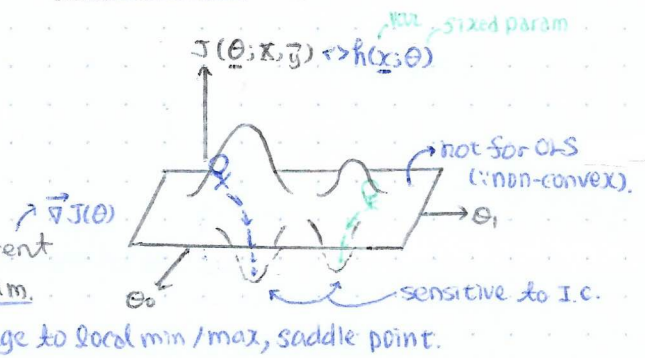 var fixed param
J(θ; X, y⃗) <-> h(x; θ)
not for OLS
(∵ non-convex).
∇⃗J(θ)
ent
θ₁
m.
θ₀
sensitive to I.C.
ge to local min/max, saddle point.